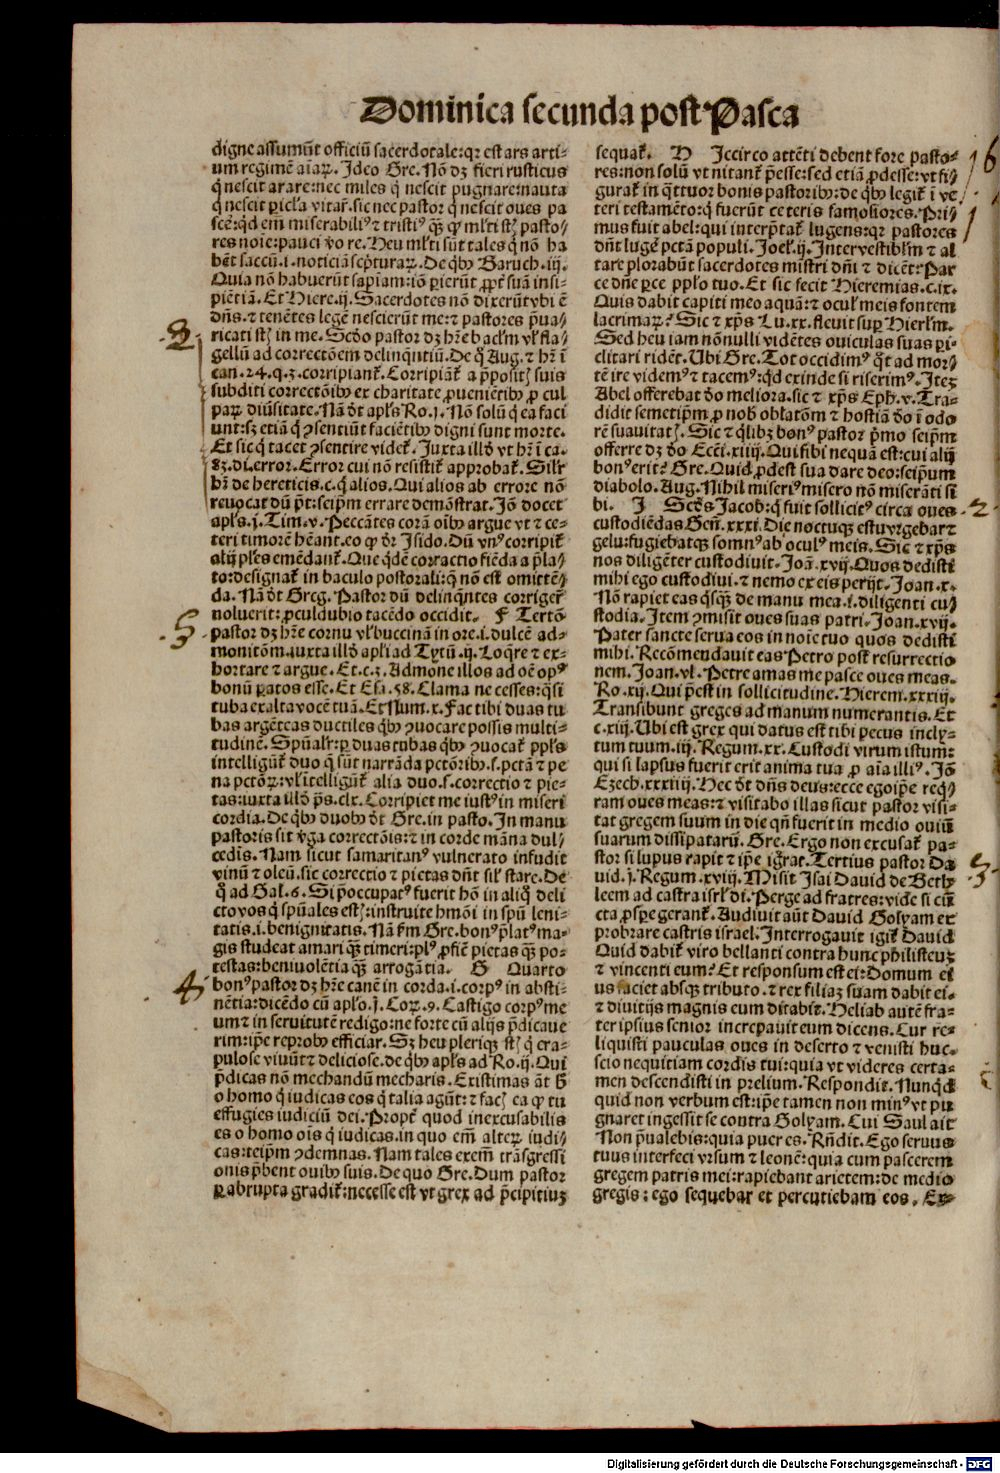 Dominica secunda post Pasca
digne assumūt officiū sacerdotale: qꝛ est ars arti-
um regimē aīaꝝ. Ideo Gre. Nō dꝫ fieri rusticus
q̇ nescit arare: nec miles q̇ nescit pugnare: nauta
q̇ nescit ꝑicl'a vitar̄. sic nec pastor q̇ nescit oues pa
scē: qd em̄ miserabiliꝰ ⁊ tristiꝰ qꝫ ꝙ ml'ti st̄ pasto/
res noīe: pauci vo re. Heu ml'ti sūt tales q̇ nō ha
bēt saccū .i. noticiā scpturaꝝ. De qbꝰ Baruch .iij.
Quia nō habuerūt sapiaꝫ: iō ꝑierūt ꝓpt̄ suā insi-
piētiā. Et Hiere .ij. Sacerdotes nō dixerūt vbi ē
dn̄s. ⁊ tenētes legē nescierūt me: ⁊ pastores p̄ua/
ricati st̄ in me. Scd̄o pastor dꝫ hr̄e bacl'm vl' fla/
gellū ad correctōem delinq̄ntiū. De q̊ Aug. ⁊ hr̄ ī
can. 24. q. 3. corripiant̄. Corripiāt̄ a p̄posit̄ suis
subditi correctōibꝰ ex charitate ꝓueniētibꝰ ꝓ cul
paꝝ diūsitate. Nā dt̄ apl's Ro. j. Nō solū q̇ ea faci
unt: sꝫ etiā q̇ ꝯsentiūt faciētibꝰ digni sunt morte.
Et sic q̇ tacet ꝯsentire videt̄. Iuxta illd' vt hr̄ ī ca.
83. di. error. Error cui nō resistit̄ approbat̄. Sil'r
hr̄ de hereticis. c. q̇ alios. Qui alios ab errore nō
reuocat dū pt̄: seipm errare demōstrat. Iō docet
apl's .j. Tim. v. Peccātes corā oībꝰ argue vt ⁊ ce-
teri timorē hēant. eo ꝙ dr̄ Isido. Dū vnꝰ corripit̄
alij pl'es emēdant̄. Que qdē corractio fiēda a p̄la/
to: designat̄ in baculo postorali: q̄ nō est omittē/
da. Nā dt̄ Greg. Pastor dū delinq̄ntes corriger̄
noluerit: ꝓculdubio tacēdo occidit. F Tertō
pastor dꝫ hr̄e cornu vl' buccinā in ore .i. dulcē ad-
monitōm. iuxta illd' apl'i ad Tytū .ij. Loqr̄e ⁊ ex-
hortare ⁊ argue. Et. c. 3. Admone illos ad oē opꝰ
bonū ꝑatos esse. Et Esa. 58. Clama ne cesses: q̄si
tuba exalta vocē tuā. Et Num. x. Fac tibi duas tu
bas argēteas ductiles qbꝰ ꝯuocare possis multi-
tudinē. Spūal'r: ꝑ duas tubas qbꝰ ꝯuocat̄ ppl's
intelligūt̄ duo q̄ sūt narrāda pctōribꝰ .s. pctā ⁊ pe
na pctōꝝ: vl' ītelligūt̄ alia duo .s. correctio ⁊ pie-
tas: iuxta illd' ps. clx. Corripiet me iustꝰ in miseri
cordia. De qbꝰ duobꝰ dt̄ Gre. in pasto. In manu
pastoris sit v̄ga correctōis: ⁊ in corde māna dul/
cedīs. Nam sicut samaritanꝰ vulnerato infudit
vinū ⁊ oleū. sic correctio ⁊ pietas dn̄t sil' stare. De
q̊ ad Gal. 6. Si p̄occupatꝰ fuerit hō in aliq̊ deli
cto vos q̇ spūales est̄: instruite hmōi in spū leni-
tatis .i. benignitatis. Nā fm̄ Gre. bonꝰ p̄latꝰ ma-
gis studeat amari qꝫ timeri: plꝰ ꝓfic̄ pietas qꝫ po-
testas: beniuolētia qꝫ arrogātia. G Quarto
bonꝰ pastor dꝫ hr̄e canē in corda .i. corpꝰ in absti-
nētia: dicēdo cū apl'o .j. Coꝝ. 9. Castigo corpꝰ me
um ⁊ in seruitutē redigo: ne forte cū alijs p̄dicaue
rim: ip̄e reprobꝰ efficiar. Sꝫ heu pleriqꝫ st̄ q̇ cra-
pulose viuūt ⁊ deliciose. de qbꝰ apl's ad Ro .ij. Qui
p̄dicas nō mechandū mecharis. Existimas āt B
o homo q̇ iudicas eos q̇ talia agūt: ⁊ fac̄ ea ꝙ tu
effugies iudiciū dei. Propt̄ quod inexcusabilis
es o homo oīs q̇ iudicas. in quo em̄ alteꝝ iudi/
cas: teipm ꝯdemnas. Nam tales exem̄ trāsgressi
onis p̄bent ouibꝰ suis. De quo Gre. Dum pastor
ꝑ abrupta gradit̄: necesse est vt grex ad p̄cipitiuꝫ
sequat̄. H Iccirco attēti debent fore pasto-
res: non solū vt nitant̄ p̄esse: sed etiā ꝓdesse: vt fi/
gurat̄ in q̄ttuor bonis pastoribꝰ: de qbꝰ legit̄ ī ve
teri testamēto: q̇ fuerūt ceteris famosiores. Pri/
mus fuit abel: qui interp̄tat̄ lugens: qꝛ pastores
dn̄t lugē pctā populi. Joel .ij. Inter vestibl'm ⁊ al
tare plorabūt sacerdotes mīstri dn̄i ⁊ dicēt: Par
ce dn̄e ꝑce ppl'o tuo. Et sic fecit Hieremias. c. ix.
Quis dabit capiti meo aquā: ⁊ ocul' meis fontem
lacrimaꝝ? Sic ⁊ xp̄s Lu. xx. fleuit suꝑ Hierl'm.
Sed heu iam nōnulli vidētes ouiculas suas pi-
clitari ridēt. Ubi Gre. Tot occidimꝰ q̊t ad mor/
tē ire videmꝰ ⁊ tacemꝰ: qd exinde si riserimꝰ. Iteꝫ
Abel offerebat do meliora. sic ⁊ xp̄s Eph. v. Tra-
didit semetipm ꝓ nob' oblatōm ⁊ hostiā do ī odo
rē suauitat̄. Sic ⁊ qlibꝫ bonꝰ pastor p̄mo seipm
offerre dꝫ do Ecci. xiiij. Qui sibi nequā est: cui alij
bonꝰ erit? Gre. Quid ꝓdest sua dare deo: seipum
diabolo. Aug. Nihil miseriꝰ misero nō miserāti si
bi. I Scd̄s Jacob: q̇ fuit sollicitꝰ circa oues
custodiēdas Gen̄. xxxi. Die noctuqꝫ estu vrgebar ⁊
gelu: fugiebatqꝫ somnꝰ ab oculꝰ meis. Sic ⁊ xp̄s
nos diligēter custodiuit. Joā. xvij. Quos dedisti
mihi ego custodiui. ⁊ nemo ex eis perijt. Joan. x.
Nō rapiet eas q̇sqꝫ de manu mea .i. diligenti cu/
stodia. Item ꝯmisit oues suas patri. Joan. xvij.
Pater sancte serua eos in noīe tuo quos dedisti
mihi. Recōmendauit eas Petro post resurrectio
nem. Joan. vl. Petre amas me pasce oues meas.
Ro. xij. Qui p̄est in sollicitudine. Hierem. xxxiij.
Transibunt greges ad manum numerantis. Et
c. xiij. Ubi est grex qui datus est tibi pecus incly-
tum tuum. iij. Regum. xx. Custodi virum istum:
qui si lapsus fuerit erit anima tua ꝓ aīa illiꝰ. Iō
Ezech. xxxiiij. Hec dt̄ dn̄s deus: ecce ego ip̄e reqꝫ/
ram oues meas: ⁊ visitabo illas sicut pastor visi-
tat gregem suum in die qn̄ fuerit in medio ouiū
suarum dissipatarū. Gre. Ergo non excusat̄ pa-
stor si lupus rapit ⁊ ip̄e ignorat. Tertius pastor Da
uid. j. Regum. xviij. Misit Isai Dauid de Beth/
leem ad castra isrl' di. Perge ad fratres: vide si cū
cta ꝓspe gerant̄. Audiuit aūt Dauid Golyam ex
probrare castris israel. Interrogauit igit̄ Dauid
Quid dabit̄ viro bellanti contra hunc philisteuꝫ
⁊ vincenti eum? Et responsum est ei: Domum ei
us faciet absqꝫ tributo. ⁊ rex filiaꝫ suam dabit ei-
⁊ diuitijs magnis eum ditabit. Heliab autē fra-
ter ipsius senior increpauit eum dicens. Cur re-
liquisti pauculas oues in deserto ⁊ venisti huc.
scio nequitiam cordis tui: quia vt videres certa-
men descendisti in prelium. Respondit. Nunqd
quid non verbum est: ip̄e tamen non minꝰ vt pu
gnaret ingessit se contra Golyam. Cui Saul ait
Non p̄ualebis: quia puer es. Rn̄dit. Ego seruus
tuus interfeci vrsum ⁊ leonē: quia cum pascerem
gregem patris mei: rapiebant arietem: de medio
gregis: ego sequebar et percutiebam eos. Ex-
2
3
4
16
1
2
3
Digitalisierung gefördert durch die Deutsche Forschungsgemeinschaft - DFG